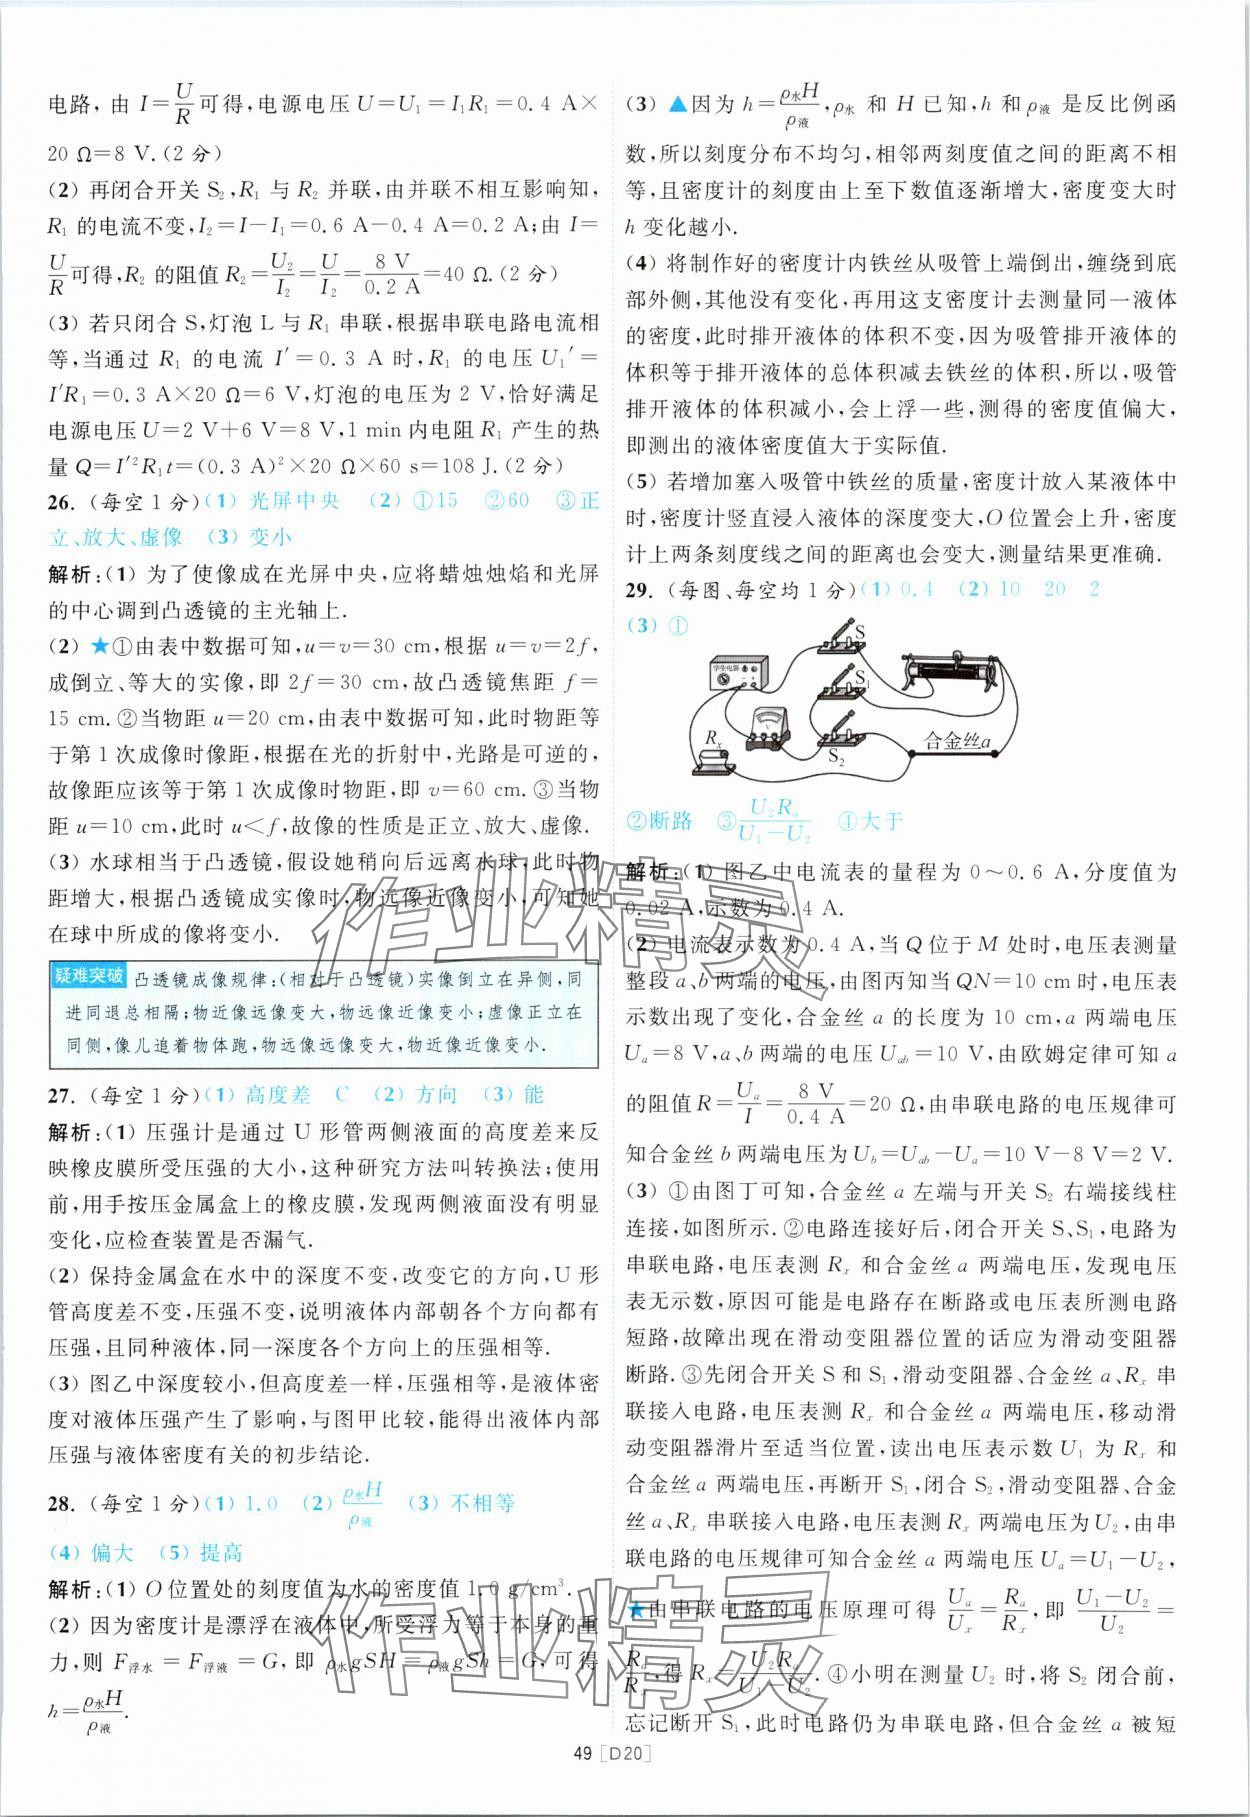 电路, 由 I=U/R可得,电源电压 U=U₁=I₁R₁=0.4 A×
20 Ω=8 V.(2 分)
(2) 再闭合开关 S₂,R₁ 与 R₂ 并联,由并联不相互影响知,
R₁ 的电流不变,I₂=I-I₁=0.6 A-0.4 A=0.2 A;由 I=
U/R可得,R₂ 的阻值 R₂=U₂/I₂=U/I₂=8 V/0.2 A=40 Ω.(2 分)
(3) 若只闭合 S,灯泡 L 与 R₁ 串联,根据串联电路电流相
等,当通过 R₁ 的电流 I′=0.3 A 时,R₁ 的电压 U₁′=
I′R₁=0.3 A×20 Ω=6 V,灯泡的电压为 2 V,恰好满足
电源电压 U=2 V+6 V=8 V,1 min 内电阻 R₁ 产生的热
量 Q=I′²R₁t=(0.3 A)²×20 Ω×60 s=108 J.(2 分)
26. (每空 1 分)(1) 光屏中央 (2) ①15 ②60 ③正
立、放大、虚像 (3) 变小
解析:(1) 为了使像成在光屏中央,应将蜡烛烛焰和光屏
的中心调到凸透镜的主光轴上.
(2) ★①由表中数据可知,u=v=30 cm,根据 u=v=2f,
成倒立、等大的实像,即 2f=30 cm,故凸透镜焦距 f=
15 cm.②当物距 u=20 cm,由表中数据可知,此时物距等
于第 1 次成像时像距,根据在光的折射中,光路是可逆的,
故像距应该等于第 1 次成像时物距,即 v=60 cm.③当物
距 u=10 cm,此时 u<f,故像的性质是正立、放大、虚像.
(3) 水球相当于凸透镜,假设她稍向后远离水球,此时物
距增大,根据凸透镜成实像时,物远像近像变小,可知她
在球中所成的像将变小.
疑难突破 凸透镜成像规律:(相对于凸透镜)实像倒立在异侧,同
进同退总相隔;物近像远像变大,物远像近像变小;虚像正立在
同侧,像儿追着物体跑,物远像远像变大,物近像近像变小.
27. (每空 1 分)(1) 高度差 C (2) 方向 (3) 能
解析:(1) 压强计是通过 U 形管两侧液面的高度差来反
映橡皮膜所受压强的大小,这种研究方法叫转换法;使用
前,用手按压金属盒上的橡皮膜,发现两侧液面没有明显
变化,应检查装置是否漏气.
(2) 保持金属盒在水中的深度不变,改变它的方向,U 形
管高度差不变,压强不变,说明液体内部朝各个方向都有
压强,且同种液体,同一深度各个方向上的压强相等.
(3) 图乙中深度较小,但高度差一样,压强相等,是液体密
度对液体压强产生了影响,与图甲比较,能得出液体内部
压强与液体密度有关的初步结论.
28. (每空 1 分)(1) 1.0 (2) ρ水H/ρ液 (3) 不相等
(4) 偏大 (5) 提高
解析:(1) O 位置处的刻度值为水的密度值 1.0 g/cm³.
(2) 因为密度计是漂浮在液体中,所受浮力等于本身的重
力,则 F浮水=F浮液=G, 即 ρ水gSH=ρ液gSh=G,可得
h=ρ水H/ρ液.
(3) ▲因为 h=ρ水H/ρ液,ρ水 和 H 已知,h 和 ρ液 是反比例函
数,所以刻度分布不均匀,相邻两刻度值之间的距离不相
等,且密度计的刻度由上至下数值逐渐增大,密度变大时
h 变化越小.
(4) 将制作好的密度计内铁丝从吸管上端倒出,缠绕到底
部外侧,其他没有变化,再用这支密度计去测量同一液体
的密度,此时排开液体的体积不变,因为吸管排开液体的
体积等于排开液体的总体积减去铁丝的体积,所以,吸管
排开液体的体积减小,会上浮一些,测得的密度值偏大,
即测出的液体密度值大于实际值.
(5) 若增加塞入吸管中铁丝的质量,密度计放入某液体中
时,密度计竖直浸入液体的深度变大,O 位置会上升,密度
计上两条刻度线之间的距离也会变大,测量结果更准确.
29. (每图、每空均 1 分)(1) 0.4 (2) 10 20 2
(3) ①
S
学生电源
S₁
Rₓ
S₂
合金丝a
②断路 ③U₂Rₐ/(U₁-U₂) ④大于
解析:(1) 图乙中电流表的量程为 0～0.6 A,分度值为
0.02 A,示数为 0.4 A.
(2) 电流表示数为 0.4 A,当 Q 位于 M 处时,电压表测量
整段 a、b 两端的电压,由图丙知当 QN=10 cm 时,电压表
示数出现了变化,合金丝 a 的长度为 10 cm,a 两端电压
Uₐ=8 V,a、b 两端的电压 Uab=10 V,由欧姆定律可知 a
的阻值 R=Uₐ/I=8 V/0.4 A=20 Ω,由串联电路的电压规律可
知合金丝 b 两端电压为 U_b=Uab-Uₐ=10 V-8 V=2 V.
(3) ①由图丁可知,合金丝 a 左端与开关 S₂ 右端接线柱
连接,如图所示.②电路连接好后,闭合开关 S、S₁,电路为
串联电路,电压表测 Rₓ 和合金丝 a 两端电压,发现电压
表无示数,原因可能是电路存在断路或电压表所测电路
短路,故障出现在滑动变阻器位置的话应为滑动变阻器
断路.③先闭合开关 S 和 S₁,滑动变阻器、合金丝 a、Rₓ 串
联接入电路,电压表测 Rₓ 和合金丝 a 两端电压,移动滑
动变阻器滑片至适当位置,读出电压表示数 U₁ 为 Rₓ 和
合金丝 a 两端电压,再断开 S₁,闭合 S₂,滑动变阻器、合金
丝 a、Rₓ 串联接入电路,电压表测 Rₓ 两端电压为 U₂,由串
联电路的电压规律可知合金丝 a 两端电压 Uₐ=U₁-U₂,
★由串联电路的电压原理可得 Uₐ/Uₓ=Rₐ/Rₓ,即 (U₁-U₂)/U₂=
Rₐ/Rₓ,得 Rₓ=U₂Rₐ/(U₁-U₂).④小明在测量 U₂ 时,将 S₂ 闭合前,
忘记断开 S₁,此时电路仍为串联电路,但合金丝 a 被短
作业精灵
作业精灵
49 [D20]